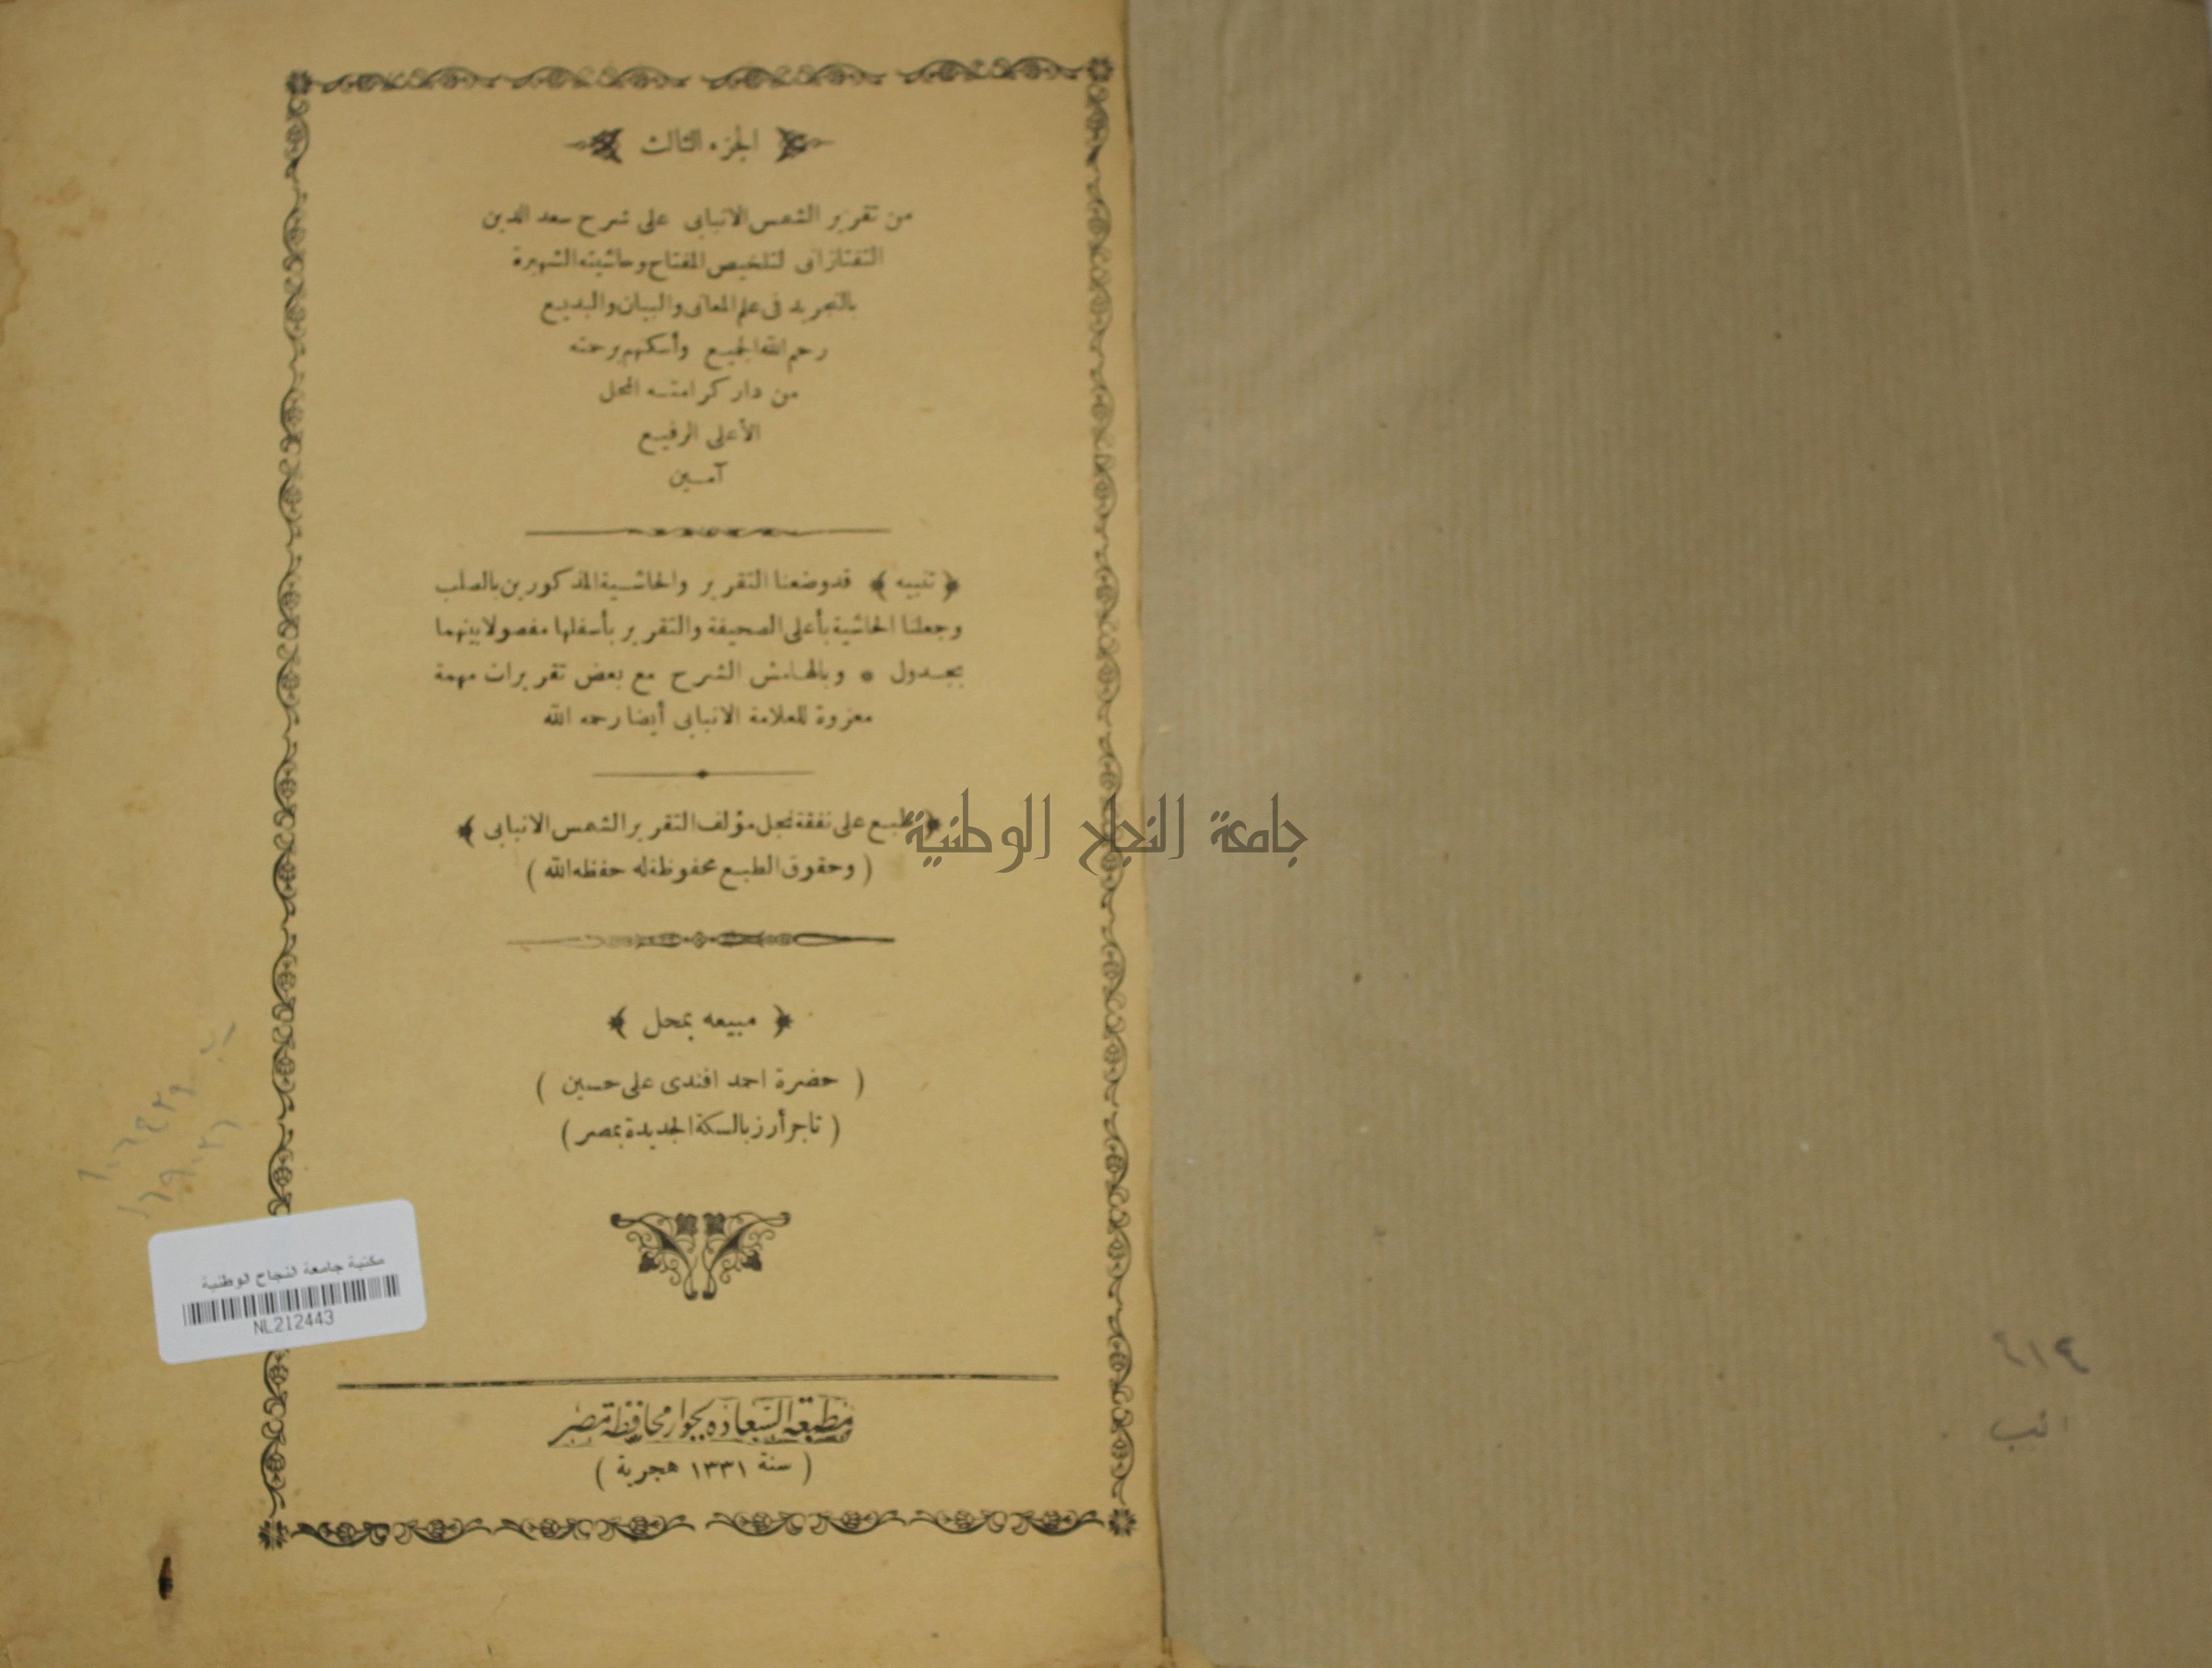 الجزء الثالث
من تقرير الشمس الانبابى على شرح سعد الدين
التفتازانى لتلخيص المفتاح وحاشيته الشهيرة
بالتجريد فى علم المعانى والبيان والبديع
رحم الله الجميع وأسكنهم برحمته
من دار كرامته المحل
الأعلى الرفيع
آمين
﴿ تنبيه ﴾ قد وضعنا التقرير والحاشية المذكورين بالصلب
وجعلنا الحاشية بأعلى الصحيفة والتقرير بأسفلها مفصولا بينهما
بجدول * وبالهامش الشرح مع بعض تقريرات مهمة
معزوة للعلامة الانبابى أيضا رحمه الله
﴿ طبع على نفقة نجل مؤلف التقرير الشمس الانبابى ﴾
( وحقوق الطبع محفوظة له حفظه الله )
جامعة النجاح الوطنية
﴿ مبيعه بمحل ﴾
( حضرة احمد افندى على حسين )
( تاجر أرز بالسكة الجديدة بمصر )
مكتبة جامعة النجاح الوطنية
NL212443
مطبعة السعادة بجوار محافظة مصر
( سنة ١٣٣١ هجرية )
٤١٤
انب